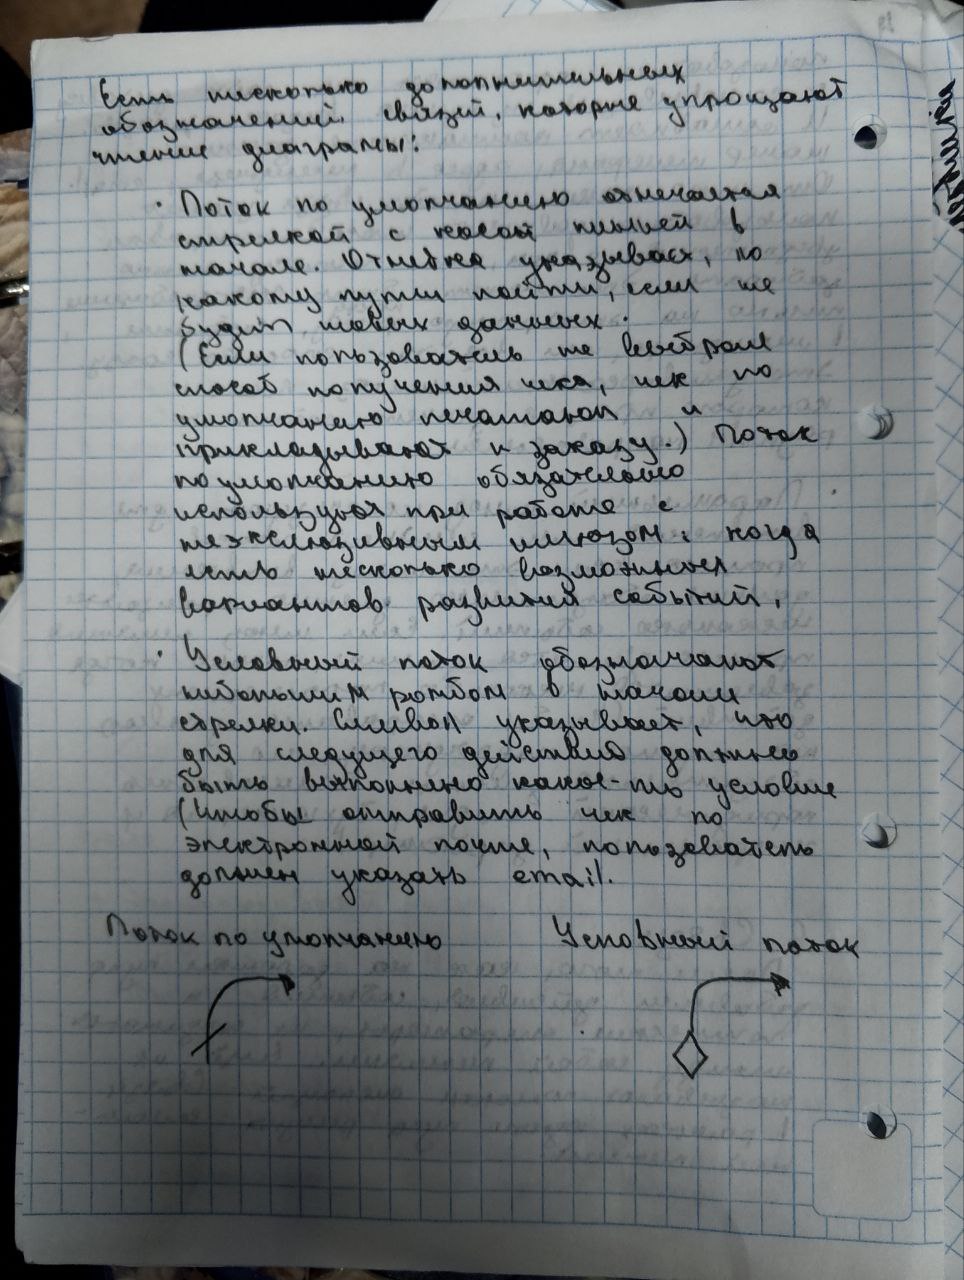 Есть несколько дополнительных
обозначений связей, которые упрощают
чтение диаграмы:
· Поток по умолчанию отмечается
стрелкой с косой линией в
начале. Отметка указывает, по
какому пути пойти, если не
будет новых данных.
(Если пользователь не выбрал
способ получения чека, чек по
умолчанию печатают и
прикладывают к заказу.) Поток
по умолчанию обязательно
используют при работе с
неэксклюзивным шлюзом: когда
есть несколько возможных
вариантов развития событий.
· Условный поток обозначают
небольшим ромбом в начале
стрелки. Символ указывает, что
для следущего действия должно
быть выполнено какое-то условие
(Чтобы отправить чек по
электронной почте, пользователь
должен указать email.
Поток по умолчанию
Условный поток